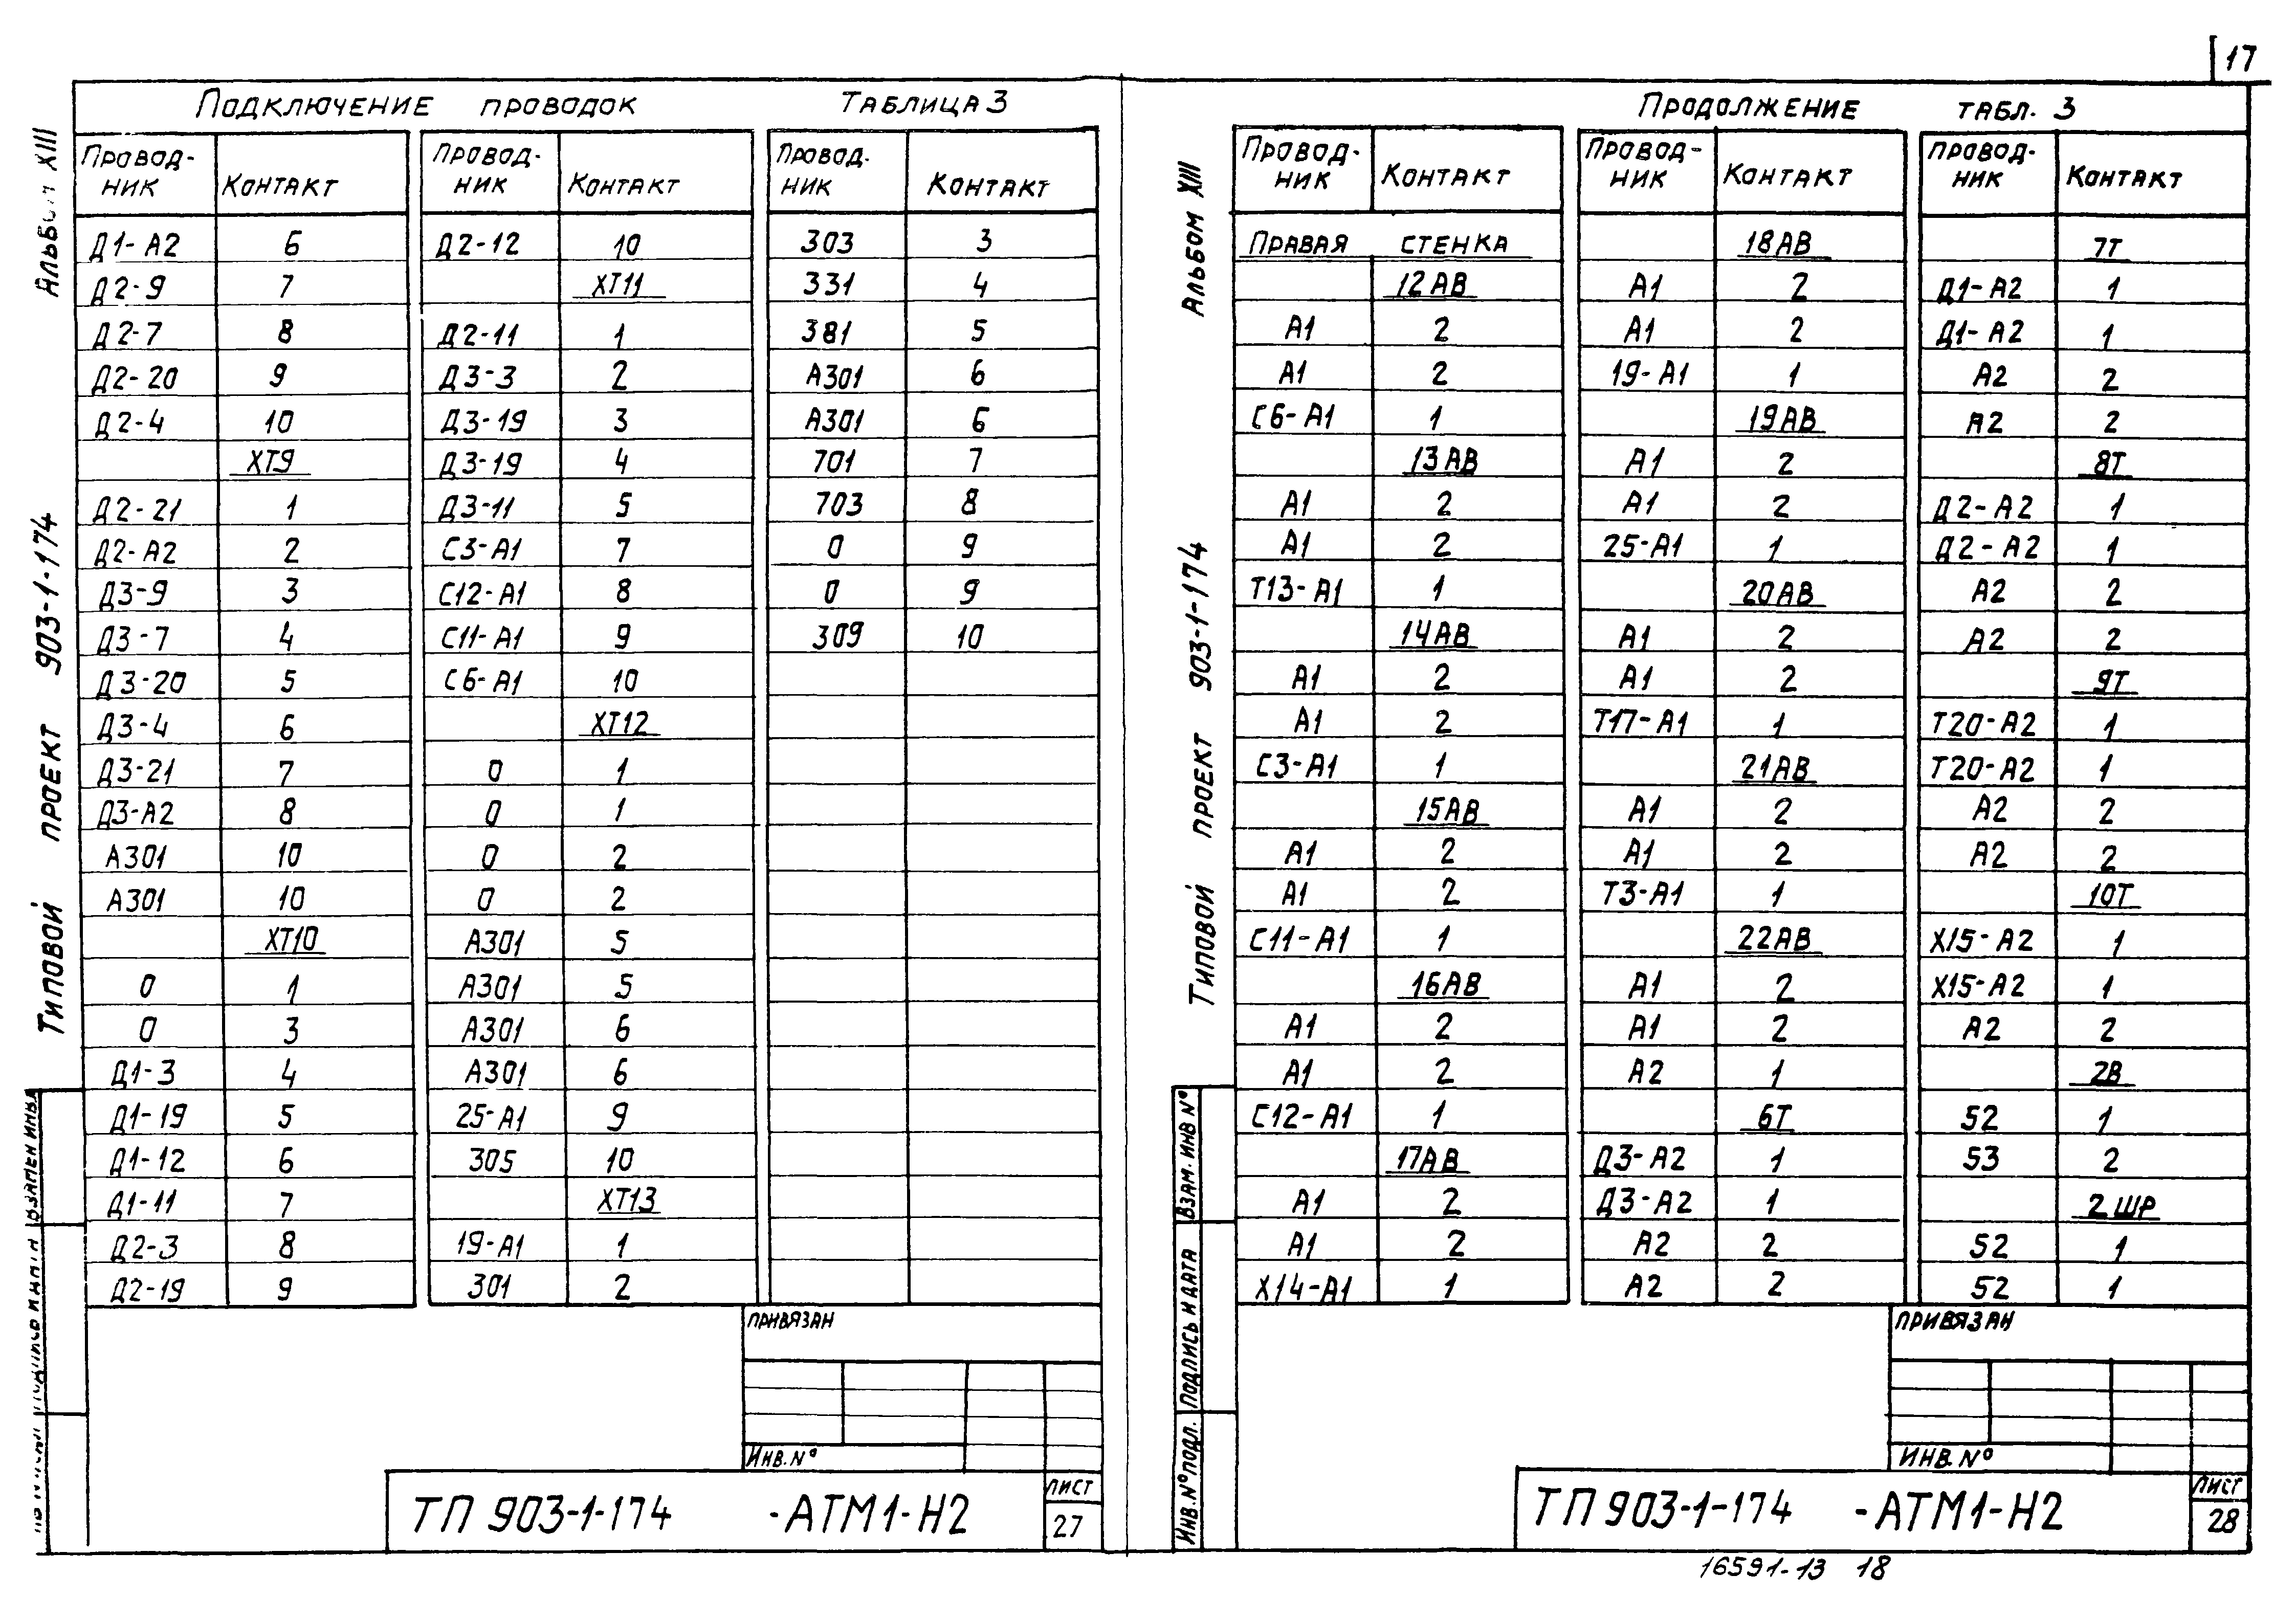 17
Подключение проводок Таблица 3
Провод- Контакт Провод- Контакт Провод. Контакт
ник ник ник
Д1-А2 6 Д2-12 10 303 3
Д2-9 7 ХТ11 331 4
Д2-7 8 Д2-11 1 381 5
Д2-20 9 Д3-3 2 А301 6
Д2-4 10 Д3-19 3 А301 6
ХТ9 Д3-19 4 701 7
Д2-21 1 Д3-11 5 703 8
Д2-А2 2 С3-А1 7 0 9
Д3-9 3 С12-А1 8 0 9
Д3-7 4 С11-А1 9 309 10
Д3-20 5 С6-А1 10
Д3-4 6 ХТ12
Д3-21 7 0 1
Д3-А2 8 0 1
А301 10 0 2
А301 10 0 2
ХТ10 А301 5
0 1 А301 5
0 3 А301 6
Д1-3 4 А301 6
Д1-19 5 25-А1 9
Д1-12 6 305 10
Д1-11 7 ХТ13
Д2-3 8 19-А1 1
Д2-19 9 301 2
Привязан
Инв. №
ТП 903-1-174 -АТМ1-Н2
Лист
27
Типовой проект 903-1-174 Альбом XIII
Продолжение табл. 3
Провод- Контакт Провод- Контакт Провод- Контакт
ник ник ник
Правая стенка 18АВ 7Т
12АВ А1 2 Д1-А2 1
А1 2 А1 2 Д1-А2 1
А1 2 19-А1 1 А2 2
С6-А1 1 19АВ А2 2
13АВ А1 2 8Т
А1 2 А1 2 Д2-А2 1
А1 2 25-А1 1 Д2-А2 1
Т13-А1 1 20АВ А2 2
14АВ А1 2 А2 2
А1 2 А1 2 9Т
А1 2 Т17-А1 1 Т20-А2 1
С3-А1 1 21АВ Т20-А2 1
15АВ А1 2 А2 2
А1 2 А1 2 А2 2
А1 2 Т3-А1 1 10Т
С11-А1 1 22АВ Х15-А2 1
16АВ А1 2 Х15-А2 1
А1 2 А1 2 А2 2
А1 2 А2 1 2В
С12-А1 1 6Т 52 1
17АВ Д3-А2 1 53 2
А1 2 Д3-А2 1 2ШР
А1 2 А2 2 52 1
Х14-А1 1 А2 2 52 1
Привязан
Инв. №
ТП 903-1-174 -АТМ1-Н2
Лист
28
Типовой проект 903-1-174 Альбом XIII
Инв. № подл. Подпись и дата Взам. инв №
16591-13 18